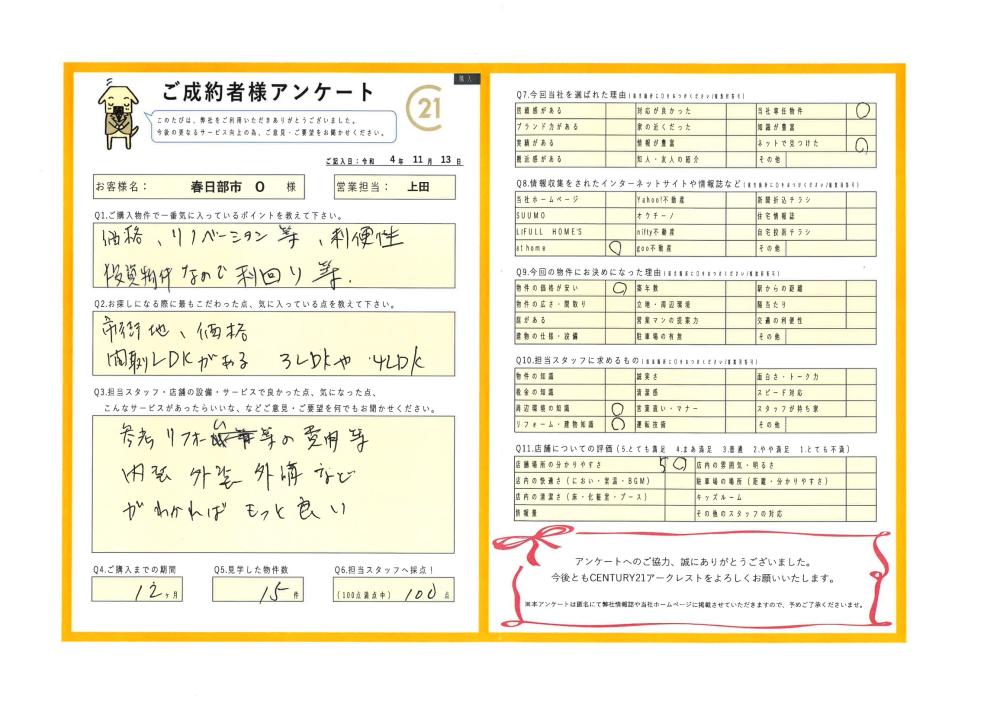 購入
ご成約者様アンケート
21
このたびは、弊社をご利用いただきありがとうございました。
今後の更なるサービス向上の為、ご意見・ご要望をお聞かせください。
ご記入日：令和 4年 11月 13日
お客様名： 春日部市 O 様
営業担当： 上田
Q1.ご購入物件で一番気に入っているポイントを教えて下さい。
価格、リノベーション等、利便性
投資物件なので利回り等.
Q2.お探しになる際に最もこだわった点、気に入っている点を教えて下さい。
市街地、価格
間取りLDKがある 3LDKや4LDK
Q3.担当スタッフ・店舗の設備・サービスで良かった点、気になった点、
こんなサービスがあったらいいな、などご意見・ご要望を何でもお聞かせください。
参考 リフォーム等の費用等
内装 外装 外構など
がわかれば もっと良い
Q4.ご購入までの期間
12ヶ月
Q5.見学した物件数
15件
Q6.担当スタッフへ採点！
（100点満点中） 100点
Q7.今回当社を選ばれた理由
信頼感がある 対応が良かった 当社専任物件 ○
ブランド力がある 家の近くだった 知識が豊富
実績がある 情報が豊富 ネットで見つけた ○
親近感がある 知人・友人の紹介 その他
Q8.情報収集をされたインターネットサイトや情報誌など
当社ホームページ Yahoo!不動産 新聞折込チラシ
SUUMO オウチーノ 住宅情報誌
LIFULL HOME'S nifty不動産 自宅投函チラシ
at home ○ goo不動産 その他
Q9.今回の物件にお決めになった理由
物件の価格が安い ○ 築年数 駅からの距離
物件の広さ・間取り 立地・周辺環境 陽当たり
庭がある 営業マンの提案力 交通の利便性
建物の仕様・設備 駐車場の有無 その他
Q10.担当スタッフに求めるもの
物件の知識 誠実さ 面白さ・トーク力
税金の知識 清潔感 スピード対応
周辺環境の知識 ○ 言葉遣い・マナー スタッフが持ち家
リフォーム・建物知識 ○ 運転技術 その他
Q11.店舗についての評価（5.とても満足 4.まあ満足 3.普通 2.やや満足 1.とても不満）
店舗場所の分かりやすさ 5 ○ 店内の雰囲気・明るさ
店内の快適さ（におい・室温・BGM） 駐車場の場所（距離・分かりやすさ）
店内の清潔さ（床・化粧室・ブース） キッズルーム
情報量 その他のスタッフの対応
アンケートへのご協力、誠にありがとうございました。
今後ともCENTURY21アークレストをよろしくお願いいたします。
※本アンケートは匿名にて弊社情報誌や当社ホームページに掲載させていただきますので、予めご了承くださいませ。